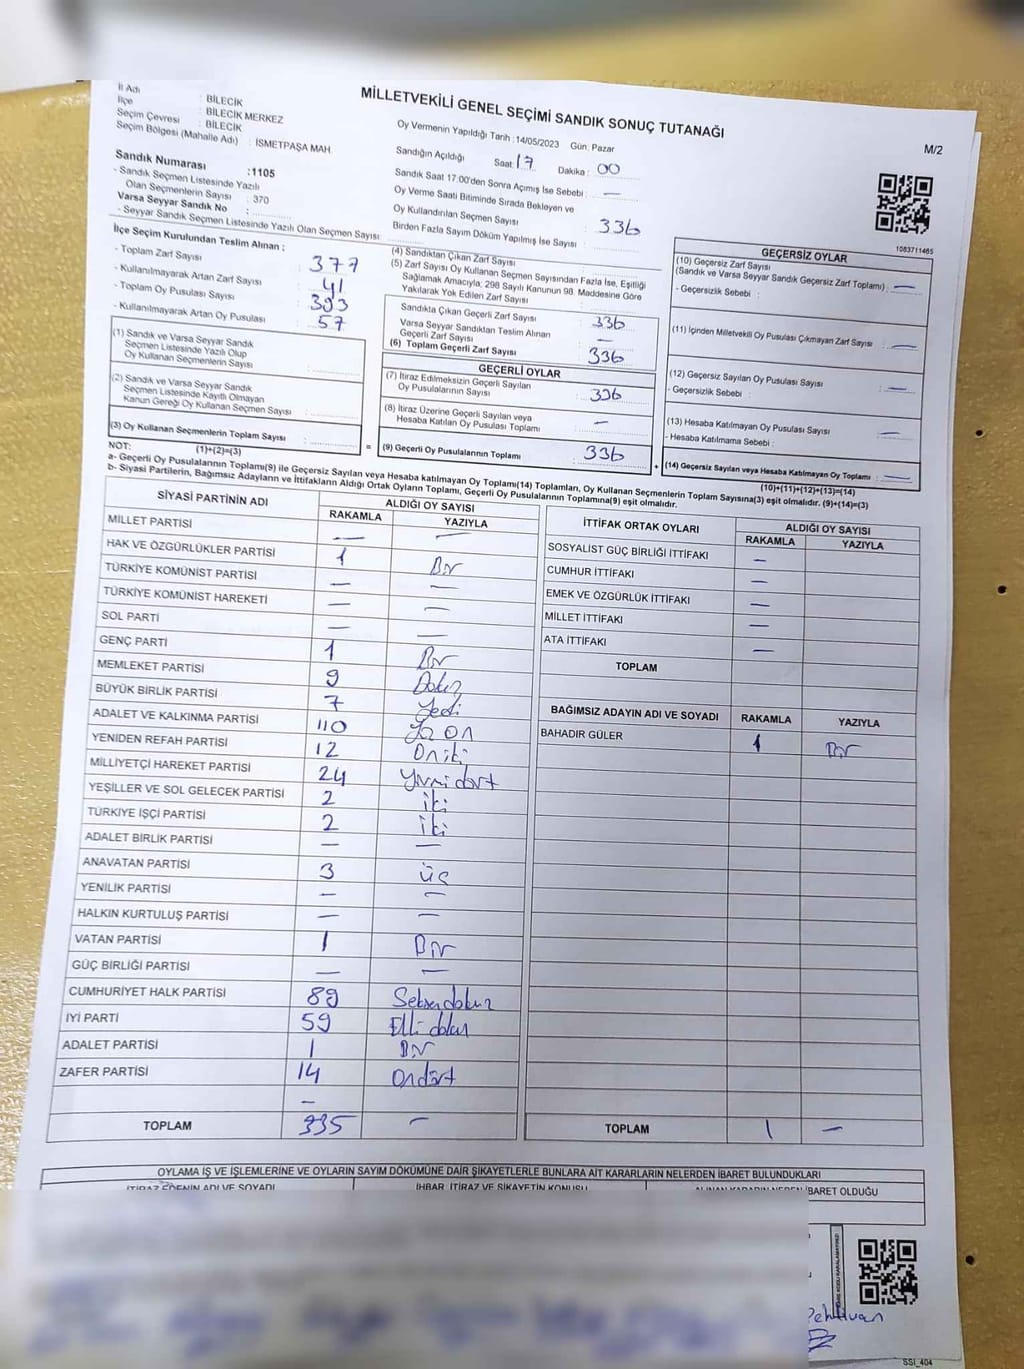 MİLLETVEKİLİ GENEL SEÇİMİ SANDIK SONUÇ TUTANAĞI
M/2
İl Adı : BİLECİK
İlçe : BİLECİK MERKEZ
Seçim Çevresi : BİLECİK
Seçim Bölgesi (Mahalle Adı) : İSMETPAŞA MAH.
Sandık Numarası :1105
- Sandık Seçmen Listesinde Yazılı
Olan Seçmenlerin Sayısı : 370
Varsa Seyyar Sandık No :
- Seyyar Sandık Seçmen Listesinde Yazılı Olan Seçmen Sayısı:
Oy Vermenin Yapıldığı Tarih :14/05/2023 Gün: Pazar
Sandığın Açıldığı Saat: 17 Dakika : 00
Sandık Saat 17.00'den Sonra Açımış İse Sebebi : —
Oy Verme Saati Bitiminde Sırada Bekleyen ve
Oy Kullandırılan Seçmen Sayısı : 336
Birden Fazla Sayım Döküm Yapılmış İse Sayısı :
1083711465
İlçe Seçim Kurulundan Teslim Alınan ;
- Toplam Zarf Sayısı : 377
- Kullanılmayarak Artan Zarf Sayısı : 41
- Toplam Oy Pusulası Sayısı : 393
- Kullanılmayarak Artan Oy Pusulası : 57
(1) Sandık ve Varsa Seyyar Sandık
Seçmen Listesinde Yazılı Olup
Oy Kullanan Seçmenlerin Sayısı :
(2) Sandık ve Varsa Seyyar Sandık
Seçmen Listesinde Kayıtlı Olmayan
Kanun Gereği Oy Kullanan Seçmen Sayısı :
(3) Oy Kullanan Seçmenlerin Toplam Sayısı :
(1)+(2)=(3)
(4) Sandıktan Çıkan Zarf Sayısı :
(5) Zarf Sayısı Oy Kullanan Seçmen Sayısından Fazla İse, Eşitliği
Sağlamak Amacıyla; 298 Sayılı Kanunun 98. Maddesine Göre
Yakılarak Yok Edilen Zarf Sayısı :
Sandıkta Çıkan Geçerli Zarf Sayısı : 336
Varsa Seyyar Sandıktan Teslim Alınan
Geçerli Zarf Sayısı : —
(6) Toplam Geçerli Zarf Sayısı : 336
GEÇERLİ OYLAR
(7) İtiraz Edilmeksizin Geçerli Sayılan
Oy Pusulalarının Sayısı : 336
(8) İtiraz Üzerine Geçerli Sayılan veya
Hesaba Katılan Oy Pusulası Toplamı : —
= (9) Geçerli Oy Pusulalarının Toplamı : 336
GEÇERSİZ OYLAR
(10) Geçersiz Zarf Sayısı
(Sandık ve Varsa Seyyar Sandık Geçersiz Zarf Toplamı) : —
- Geçersizlik Sebebi :
(11) İçinden Milletvekili Oy Pusulası Çıkmayan Zarf Sayısı : —
(12) Geçersiz Sayılan Oy Pusulası Sayısı : —
- Geçersizlik Sebebi :
(13) Hesaba Katılmayan Oy Pusulası Sayısı : —
- Hesaba Katılmama Sebebi :
+ (14) Geçersiz Sayılan veya Hesaba Katılmayan Oy Toplamı : —
(10)+(11)+(12)+(13)=(14)
NOT:
a- Geçerli Oy Pusulalarının Toplamı(9) ile Geçersiz Sayılan veya Hesaba katılmayan Oy Toplamı(14) Toplamları, Oy Kullanan Seçmenlerin Toplam Sayısına(3) eşit olmalıdır. (9)+(14)=(3)
b- Siyasi Partilerin, Bağımsız Adayların ve İttifakların Aldığı Ortak Oyların Toplamı, Geçerli Oy Pusulalarının Toplamına(9) eşit olmalıdır.
SİYASİ PARTİNİN ADI ALDIĞI OY SAYISI
RAKAMLA YAZIYLA
MİLLET PARTİSİ — —
HAK VE ÖZGÜRLÜKLER PARTİSİ 1 Bir
TÜRKİYE KOMÜNİST PARTİSİ — —
TÜRKİYE KOMÜNİST HAREKETİ — —
SOL PARTİ — —
GENÇ PARTİ 1 Bir
MEMLEKET PARTİSİ 9 Dokuz
BÜYÜK BİRLİK PARTİSİ 7 Yedi
ADALET VE KALKINMA PARTİSİ 110 Yüz on
YENİDEN REFAH PARTİSİ 12 Oniki
MİLLİYETÇİ HAREKET PARTİSİ 24 Yirmi dört
YEŞİLLER VE SOL GELECEK PARTİSİ 2 iki
TÜRKİYE İŞÇİ PARTİSİ 2 iki
ADALET BİRLİK PARTİSİ — —
ANAVATAN PARTİSİ 3 üç
YENİLİK PARTİSİ — —
HALKIN KURTULUŞ PARTİSİ — —
VATAN PARTİSİ 1 Bir
GÜÇ BİRLİĞİ PARTİSİ — —
CUMHURİYET HALK PARTİSİ 89 Seksendokuz
İYİ PARTİ 59 Elli dokuz
ADALET PARTİSİ 1 Bir
ZAFER PARTİSİ 14 Ondört
—
TOPLAM 335 —
İTTİFAK ORTAK OYLARI ALDIĞI OY SAYISI
RAKAMLA YAZIYLA
SOSYALIST GÜÇ BİRLİĞİ İTTİFAKI —
CUMHUR İTTİFAKI —
EMEK VE ÖZGÜRLÜK İTTİFAKI —
MİLLET İTTİFAKI —
ATA İTTİFAKI —
TOPLAM
BAĞIMSIZ ADAYIN ADI VE SOYADI RAKAMLA YAZIYLA
BAHADIR GÜLER 1 Bir
TOPLAM 1 —
OYLAMA İŞ VE İŞLEMLERİNE VE OYLARIN SAYIM DÖKÜMÜNE DAİR ŞİKAYETLERLE BUNLARA AİT KARARLARIN NELERDEN İBARET BULUNDUKLARI
İTİRAZ EDENİN ADI VE SOYADI İHBAR, İTİRAZ VE ŞİKAYETİN KONUSU ALINAN KARARIN NEDEN İBARET OLDUĞU
Pehlivan
SSİ_404